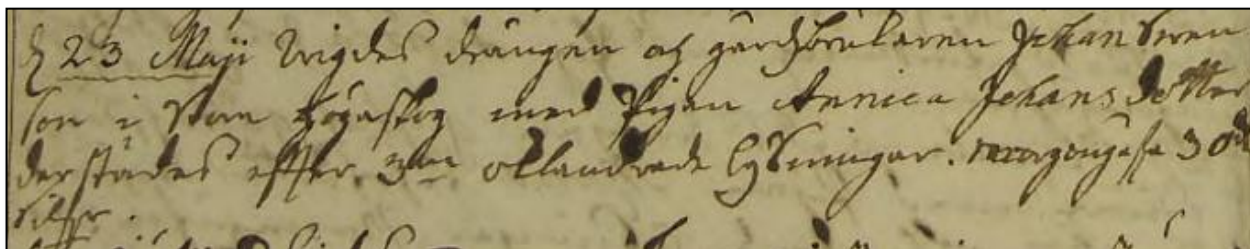 d 23 Maji Vigdes drängen och gårdzbrukaren Johan Swen
son i Stora Högaskog med Pigan Annica Johans Dotter
derstädes effter 3ne oklandrade lysningar. morgongåfva 30
silfr.